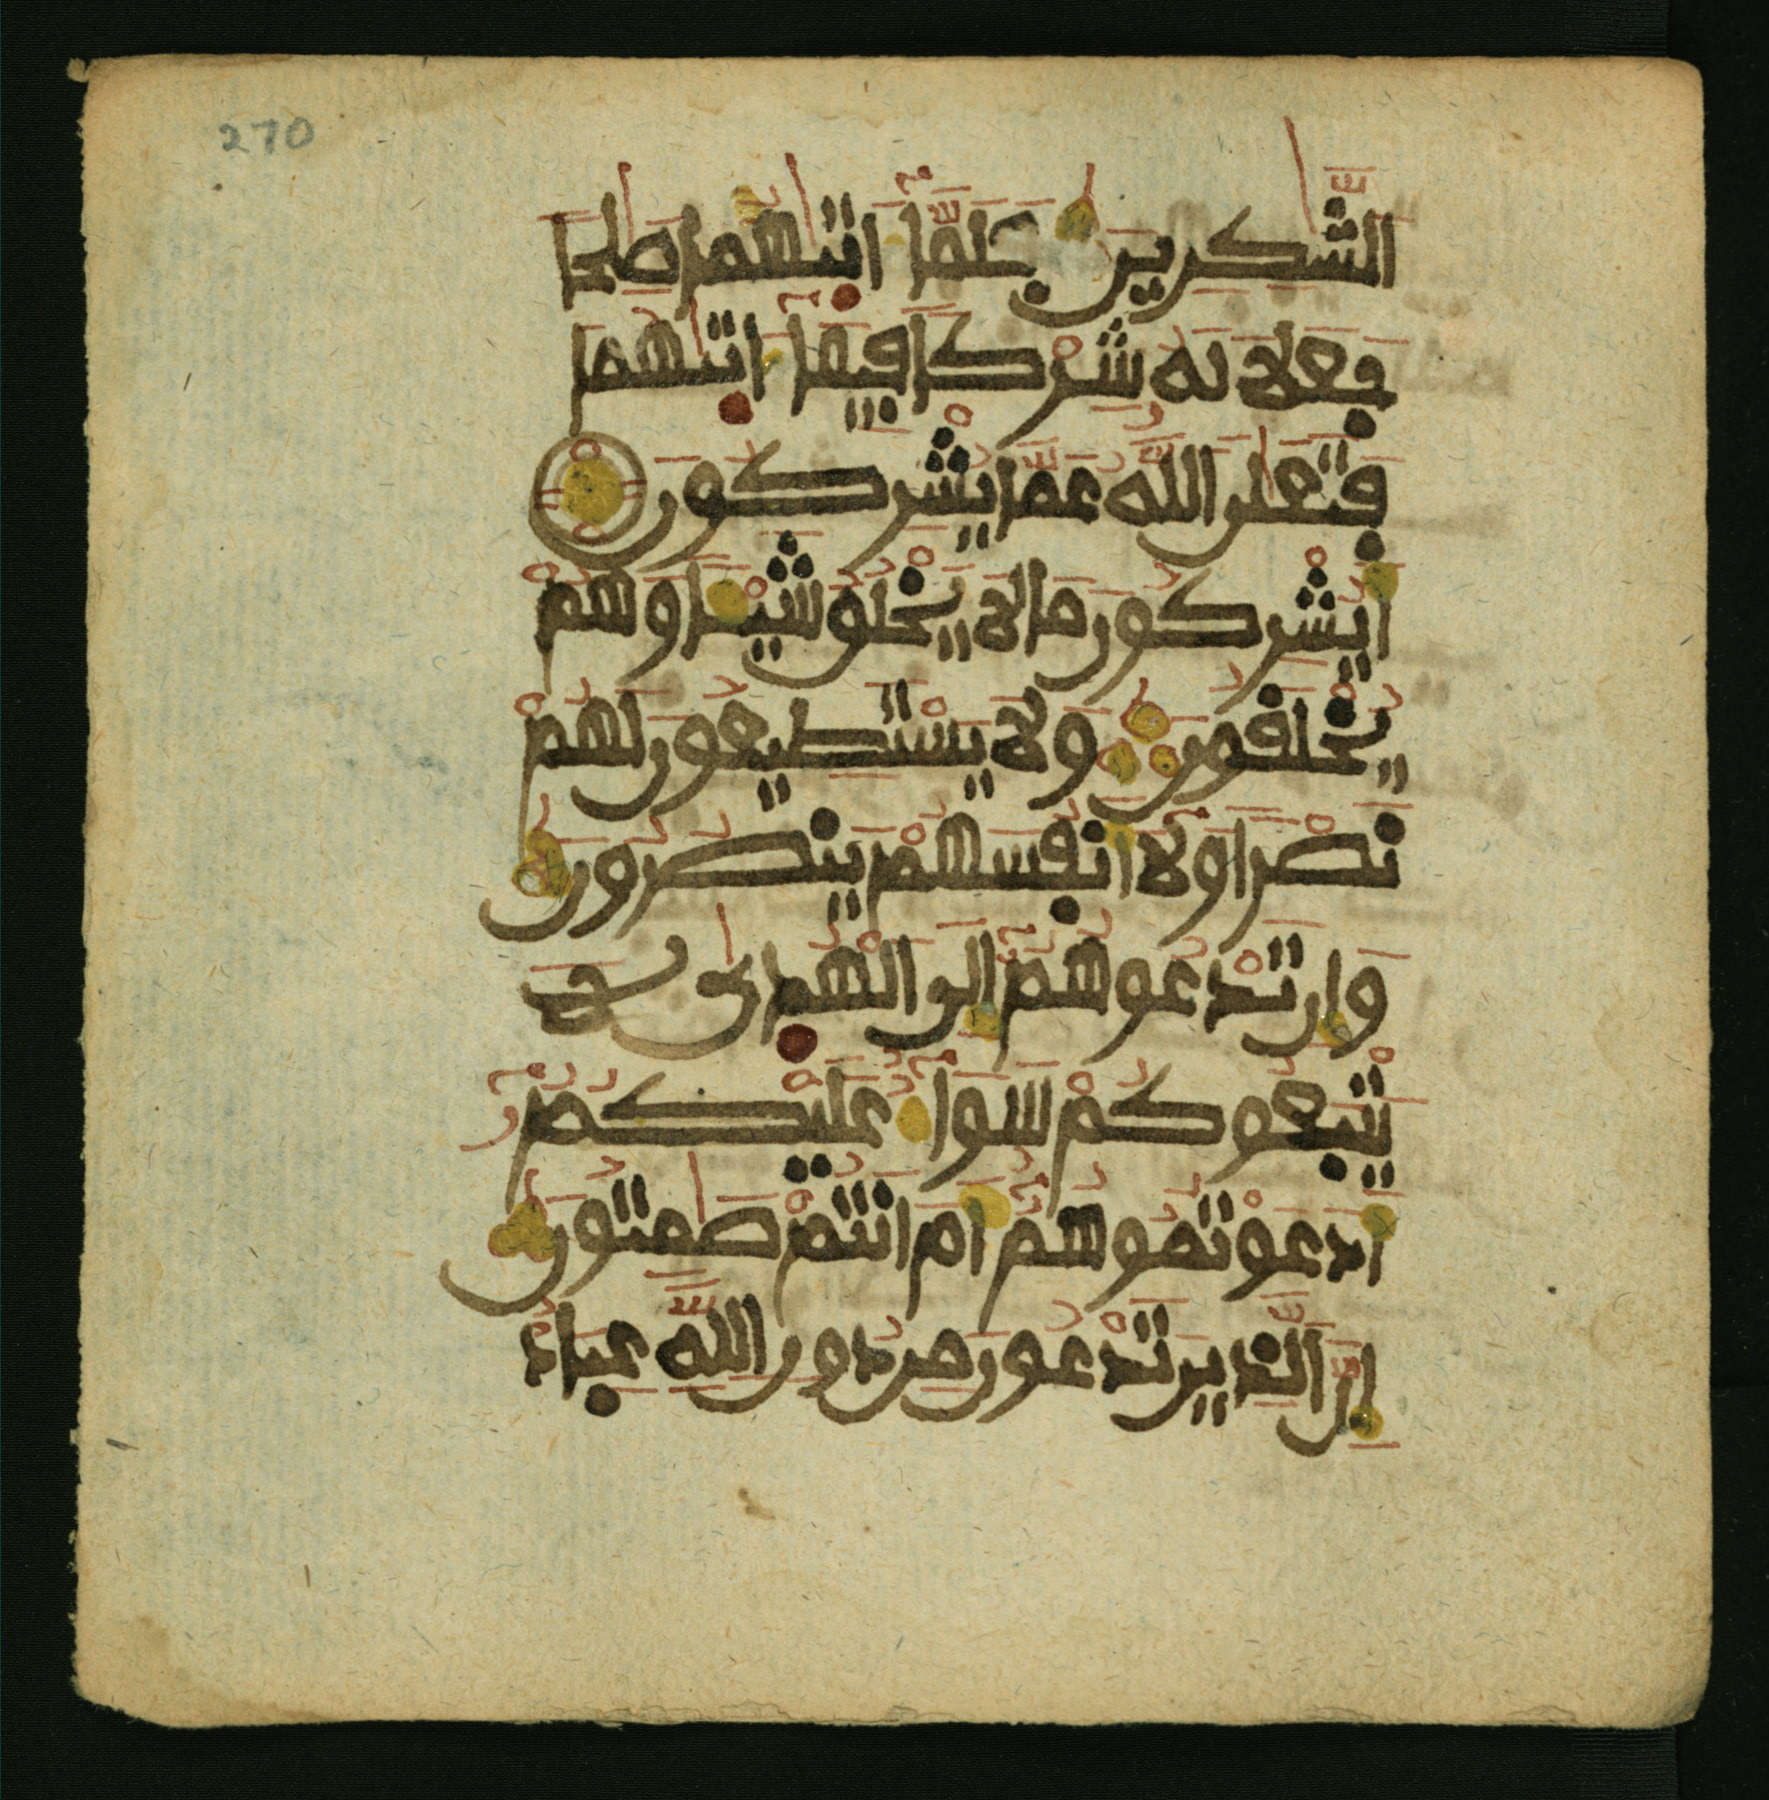 270
الشّٰكرين فلمّا اتىٰهما صٰلحا
جعلا له شركا فيما اتىٰهما
فتعٰلى الله عمّا يشركون
ايشركون ما لا يخلق شيـا وهم
يخلقون ولا يستطيعون لهم
نصرا ولا انفسهم ينصرون
وان تدعوهم الى الهدىٰ لا
يتبعوكم سوا عليكم
ادعوتموهم ام انتم صٰمتون
انّ الّذين تدعون من دون اللّه عباد